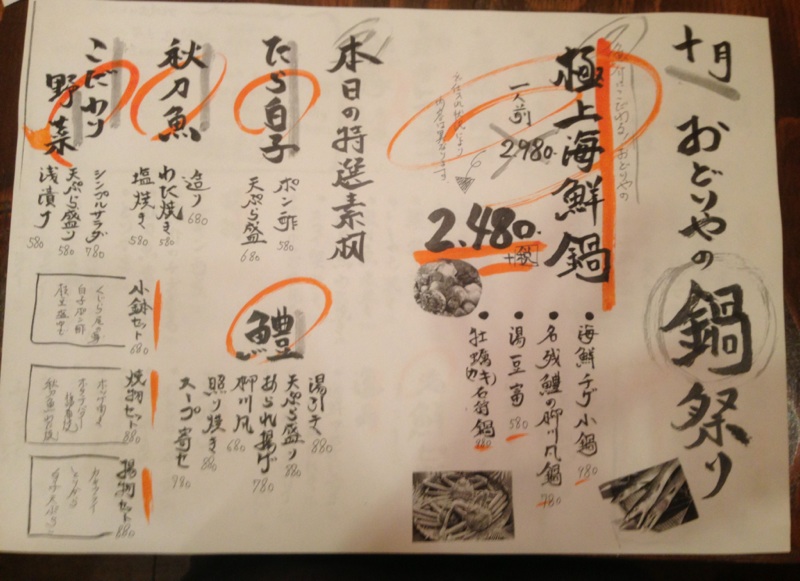 十月 おどりやの
鍋祭り
極上海鮮鍋
一人前
2980.
2.480.
+税
・海鮮チゲ小鍋 980
・名残鱧の柳川風鍋 780
・湯豆富 580
・牡蠣(カキ)石狩鍋 980
本日の特選素材
たら白子
ポン酢 580
天ぷら盛 680
秋刀魚
造り 680
わた焼き 580
塩焼き 580
こだわり野菜
シンプルサラダ 780
天ぷら盛り 580
浅漬け 580
鱧
湯引き 880
天ぷら盛り 880
あられ揚げ 780
柳川風 680
照り焼き 880
スープ寄せ 980
小鉢セット 680
白子ポン酢
焼物セット 880
揚物セット 880
白子天ぷら